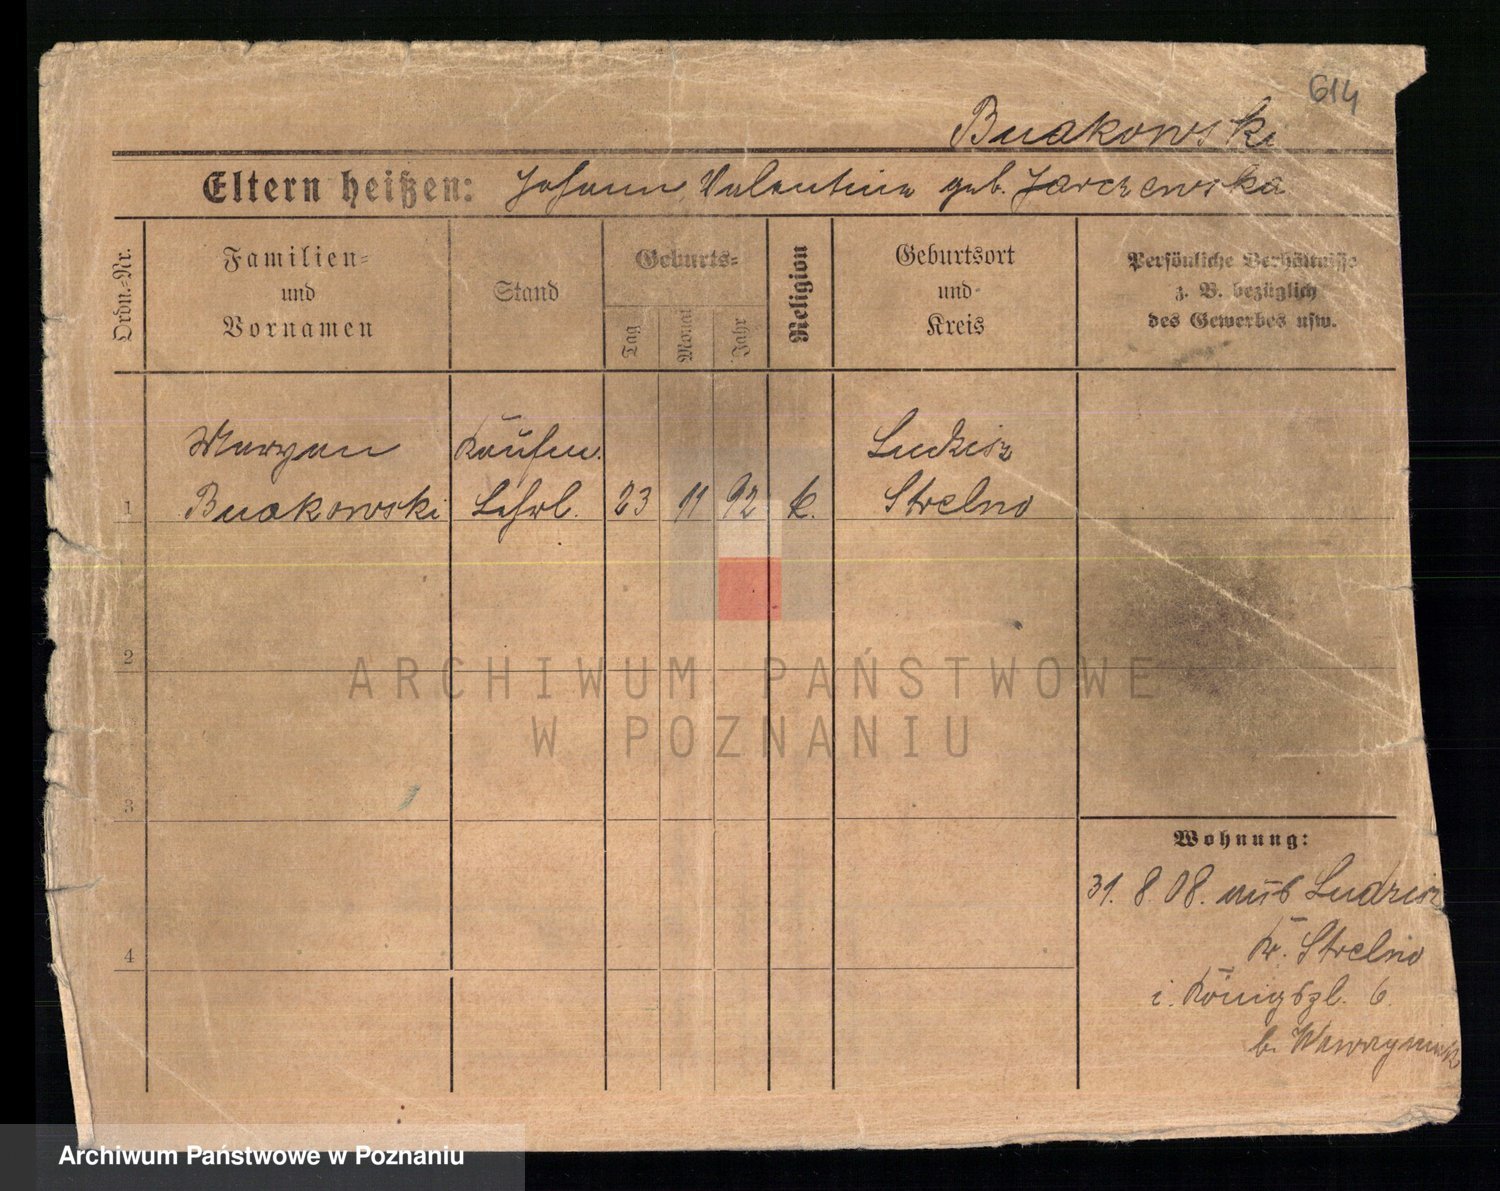 614
Buakowski
Eltern heißen: Johann, Valentina geb. Jarczewska
Ordn.-Nr.
Familien-
und
Vornamen
Stand
Geburts-
Tag
Monat
Jahr
Religion
Geburtsort
und
Kreis
Persönliche Verhältnisse
z. B. bezüglich
des Gewerbes usw.
Maryan Kaufm. Ludzisz
1 Buakowski Lehrl. 23 11 92 k. Strelno
2
ARCHIWUM PAŃSTWOWE
W POZNANIU
3
Wohnung:
31. 8. 08. aus Ludzisz
Kr. Strelno
4
i. Königspl. 6.
b. Wawrzyniak
Archiwum Państwowe w Poznaniu